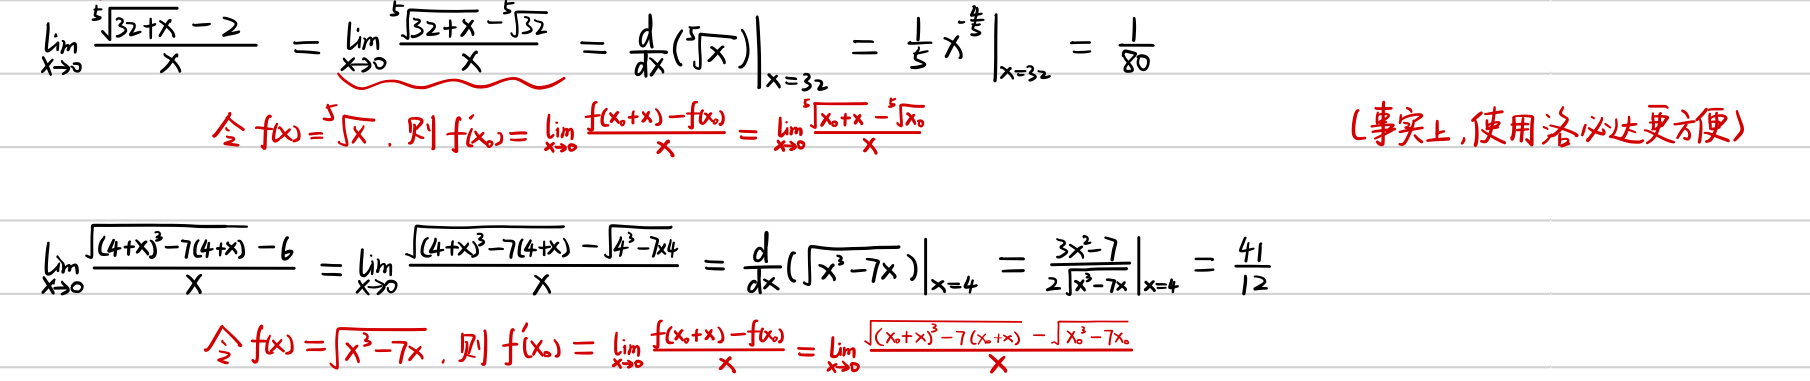 $\lim\limits_{x\to0}\frac{\sqrt[5]{32+x}-2}{x}=\lim\limits_{x\to0}\frac{\sqrt[5]{32+x}-\sqrt[5]{32}}{x}=\frac{d}{dx}(\sqrt[5]{x})\Big|_{x=32}=\frac{1}{5}x^{-\frac{4}{5}}\Big|_{x=32}=\frac{1}{80}$
令 $f(x)=\sqrt[5]{x}$. 则 $f'(x_0)=\lim\limits_{x\to0}\frac{f(x_0+x)-f(x_0)}{x}=\lim\limits_{x\to0}\frac{\sqrt[5]{x_0+x}-\sqrt[5]{x_0}}{x}$ (事实上,使用洛必达更方便)
$\lim\limits_{x\to0}\frac{\sqrt{(4+x)^3-7(4+x)}-6}{x}=\lim\limits_{x\to0}\frac{\sqrt{(4+x)^3-7(4+x)}-\sqrt{4^3-7\times4}}{x}=\frac{d}{dx}(\sqrt{x^3-7x})\Big|_{x=4}=\frac{3x^2-7}{2\sqrt{x^3-7x}}\Big|_{x=4}=\frac{41}{12}$
令 $f(x)=\sqrt{x^3-7x}$. 则 $f'(x_0)=\lim\limits_{x\to0}\frac{f(x_0+x)-f(x_0)}{x}=\lim\limits_{x\to0}\frac{\sqrt{(x_0+x)^3-7(x_0+x)}-\sqrt{x_0^3-7x_0}}{x}$